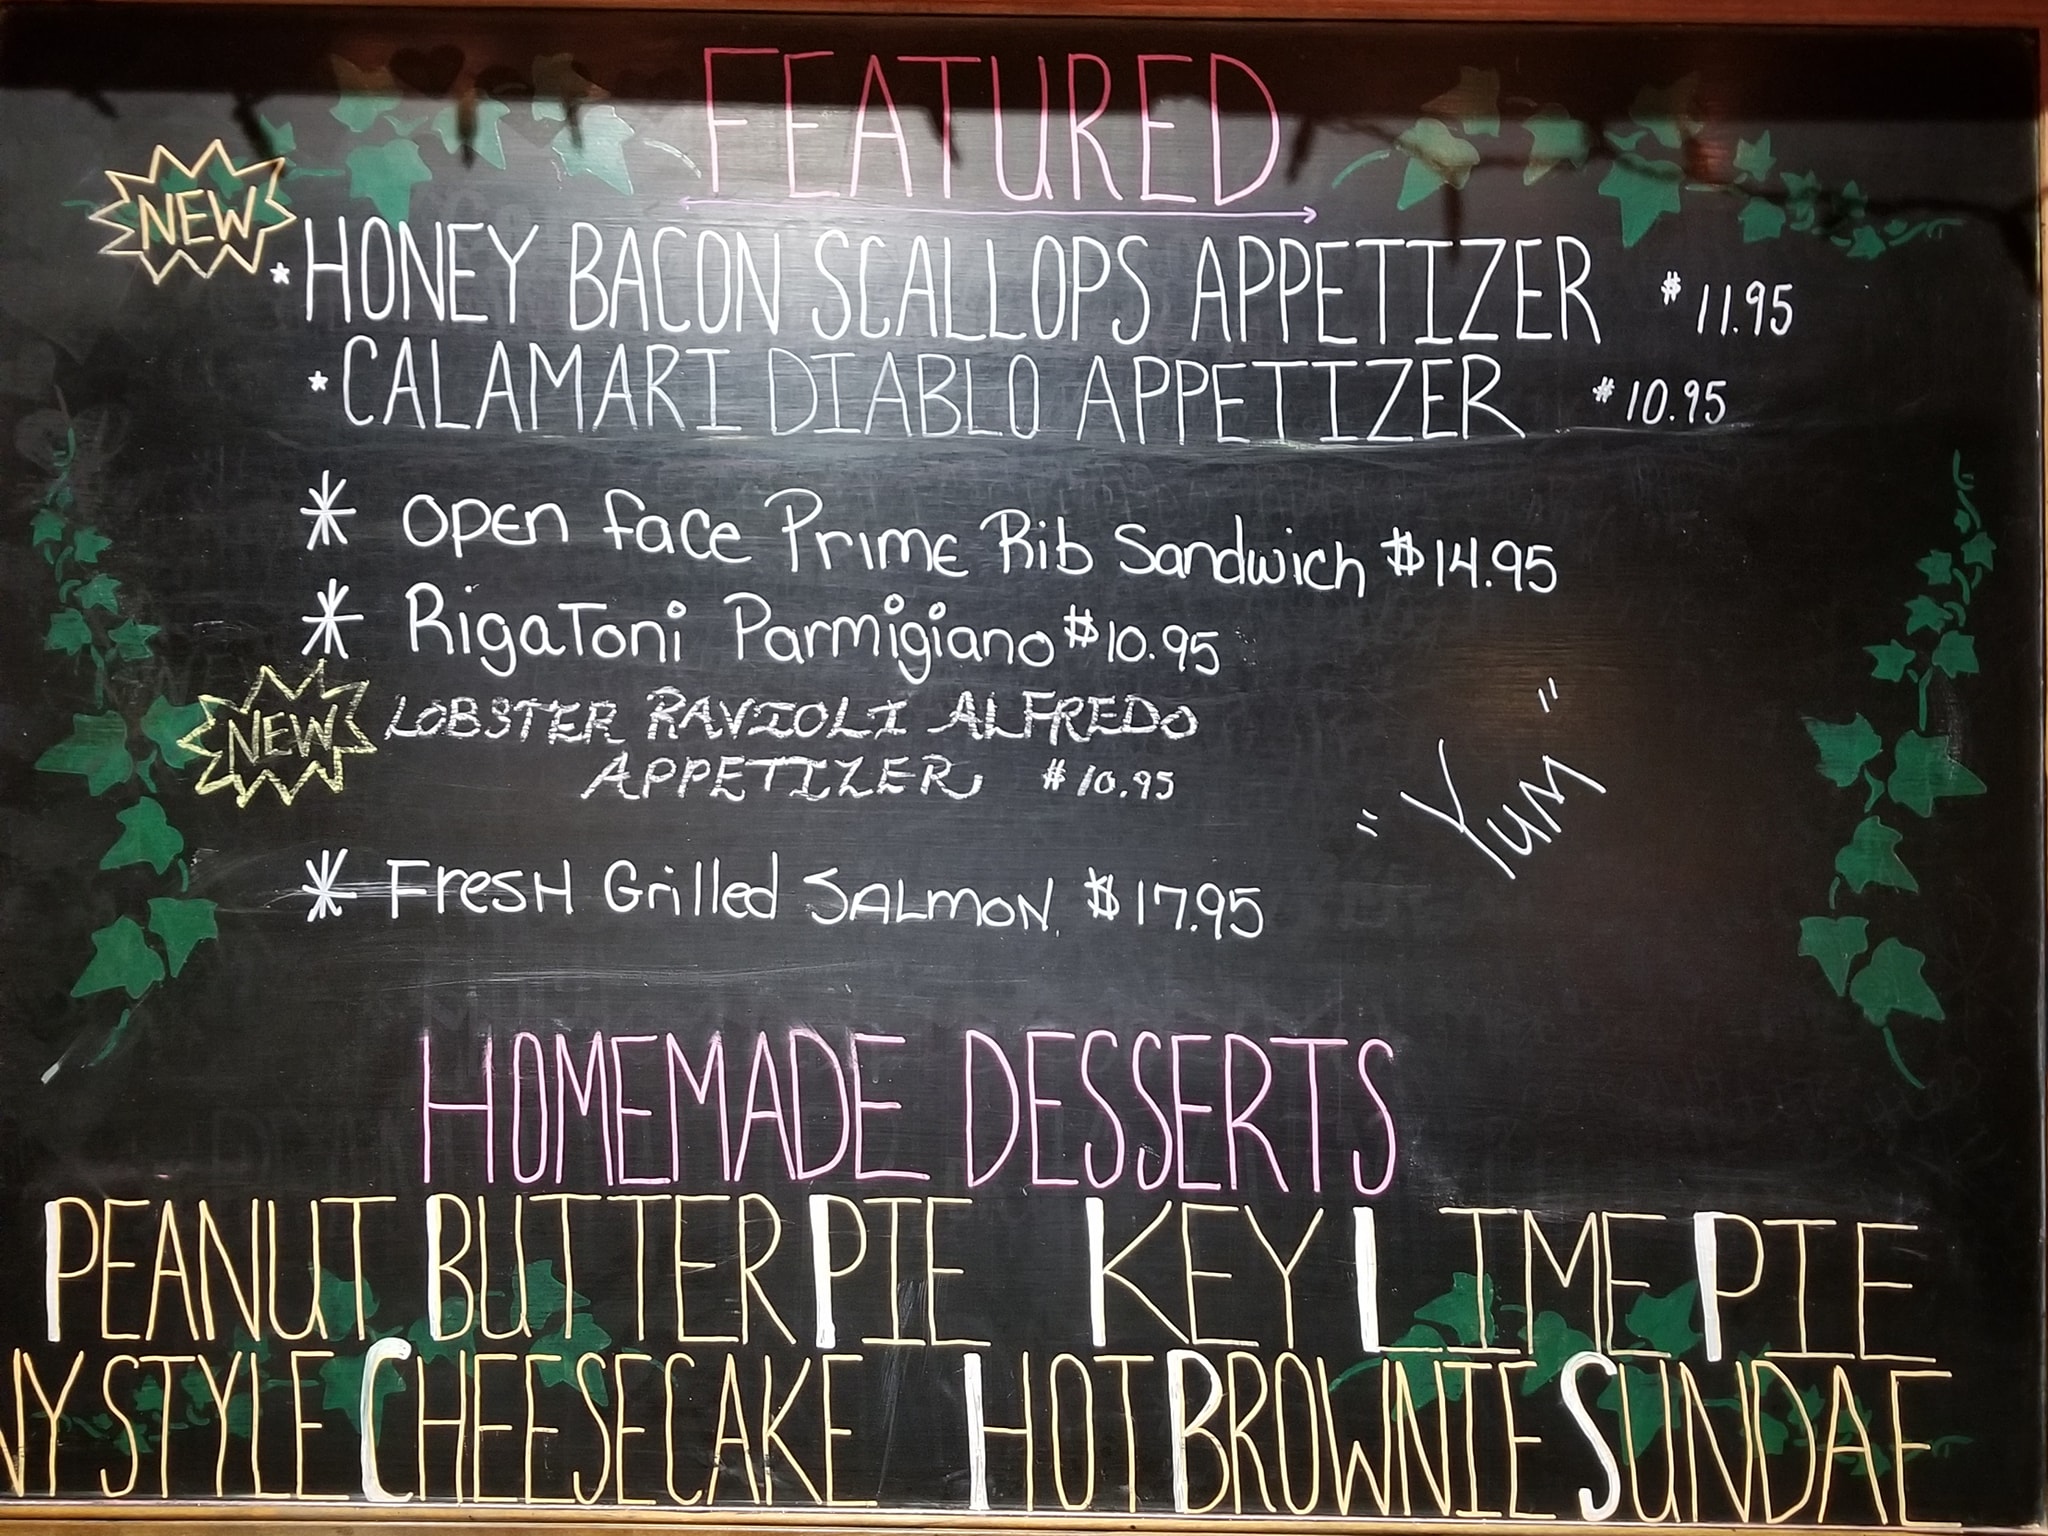 FEATURED
NEW
* HONEY BACON SCALLOPS APPETIZER $11.95
* CALAMARI DIABLO APPETIZER $10.95
* Open face Prime Rib Sandwich $14.95
* RigaToni Parmigiano $10.95
NEW
LOBSTER RAVIOLI ALFREDO
APPETIZER $10.95
"Yum"
* Fresh Grilled SALMON $17.95
HOMEMADE DESSERTS
PEANUT BUTTER PIE KEY LIME PIE
NY STYLE CHEESECAKE HOT BROWNIE SUNDAE